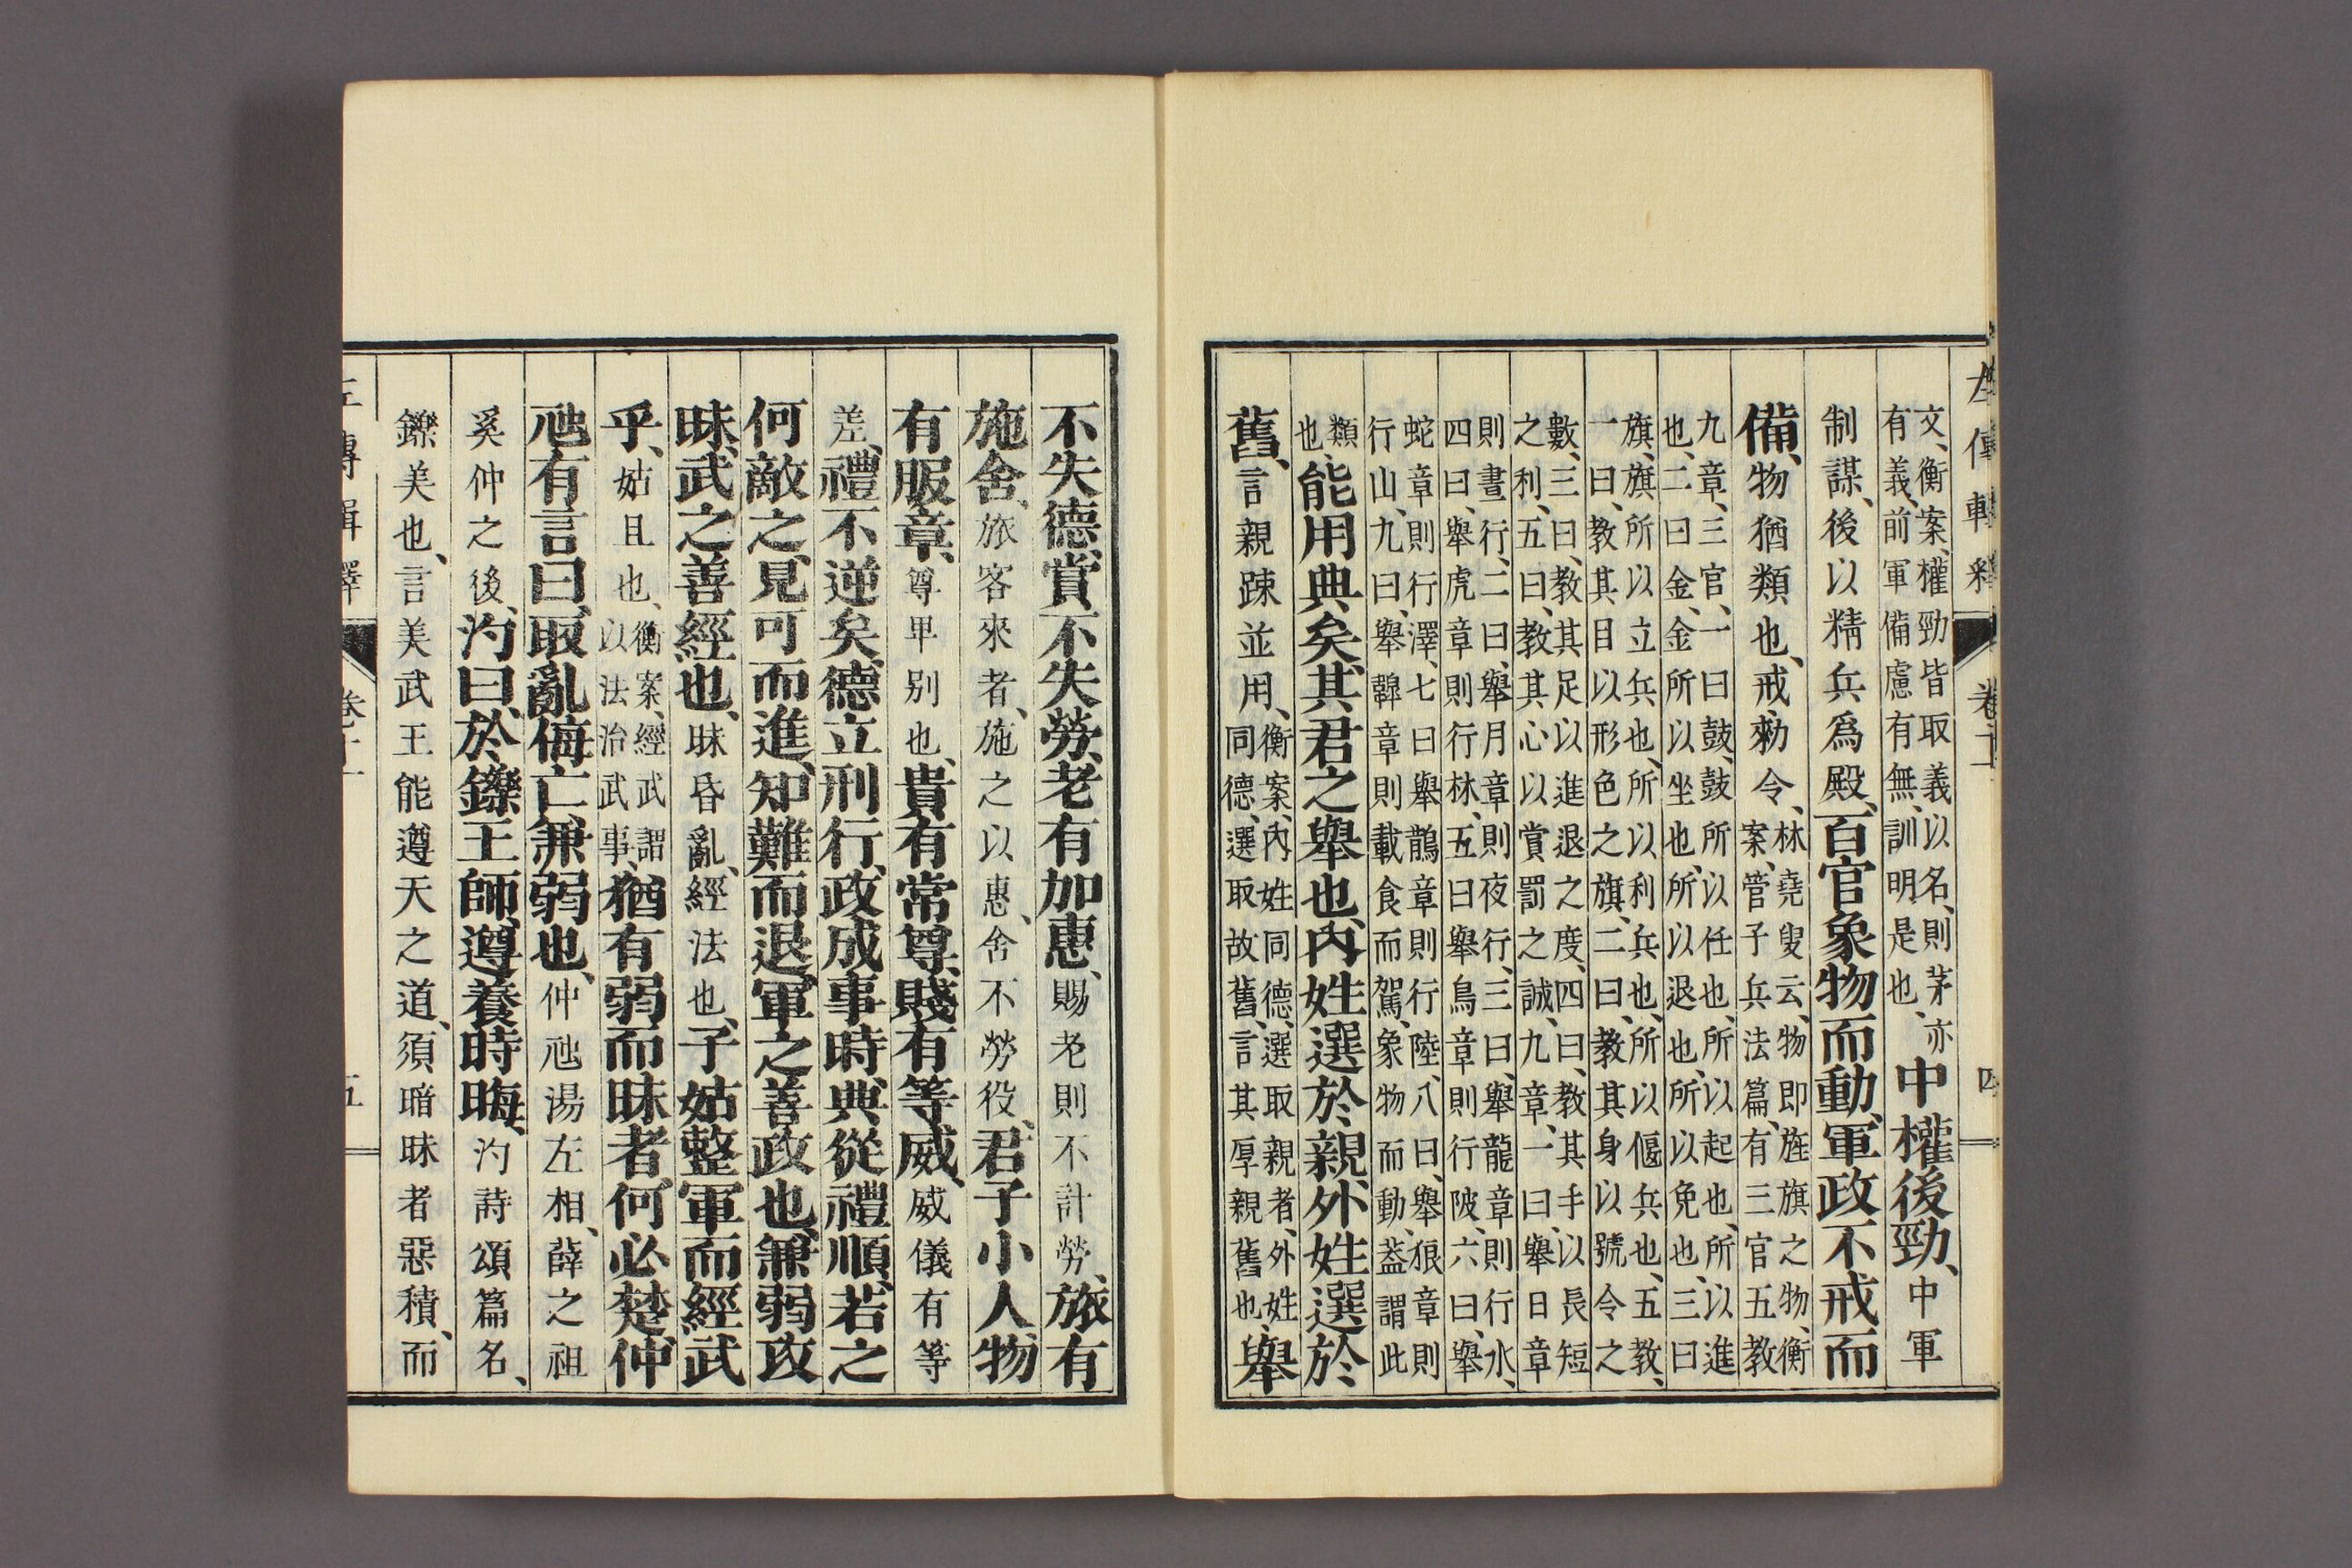 左傳輯釋 卷十一 四
文、衡案、權勁皆取義以名、則茅亦
有義、前軍備慮有無、訓明是也、
中權後勁、中軍
制謀、後以精兵爲殿、百官象物而動、軍政不戒而
備、物猶類也、戒、勑令、
林堯叟云、物即旌旗之物、衡
案、管子兵法篇、有三官五教
九章、三官、一曰鼓、鼓所以任也、所以起也、所以進
也、二曰金、金所以坐也、所以退也、所以免也、三曰
旗、旗所以立兵也、所以利兵也、所以偃兵也、五教、
一曰、教其目以形色之旗、二曰、教其身以號令之
數、三曰、教其足以進退之度、四曰、教其手以長短
之利、五曰、教其心以賞罰之誠、九章、一曰、舉日章
則晝行、二曰、舉月章則夜行、三曰、舉龍章則行水、
四曰、舉虎章則行林、五曰舉鳥章則行陂、六曰、舉
蛇章則行澤、七曰舉鵲章則行陸、八曰、舉狼章則
行山、九曰、舉韟章則載食而駕、象物而動、蓋謂此
類
也、
能用典矣、其君之舉也、內姓選於親、外姓選於
舊、言親疎並用、
衡案、內姓同德、選取親者、外姓
同德、選取故舊、言其厚親舊也、
舉
不失德、賞不失勞、老有加惠、賜老則不計勞、旅有
施舍、旅客來者、施之以惠、舍不勞役、君子小人、物
有服章、尊卑別也、貴有常尊、賤有等威、威儀有等
差、禮不逆矣、德立刑行、政成事時、典從禮順、若之
何敵之、見可而進、知難而退、軍之善政也、兼弱攻
昧、武之善經也、昧昏亂、經法也、子姑整軍而經武
乎、姑且也、
衡案、經武謂
以法治武事、
猶有弱而昧者、何必楚、仲
虺有言曰、取亂侮亡、兼弱也、仲虺湯左相、薛之祖
奚仲之後、汋曰、於鑠王師、遵養時晦、汋詩頌篇名、
鑠美也、言美武王能遵天之道、須暗昧者惡積、而
左傳輯釋 卷十一 五